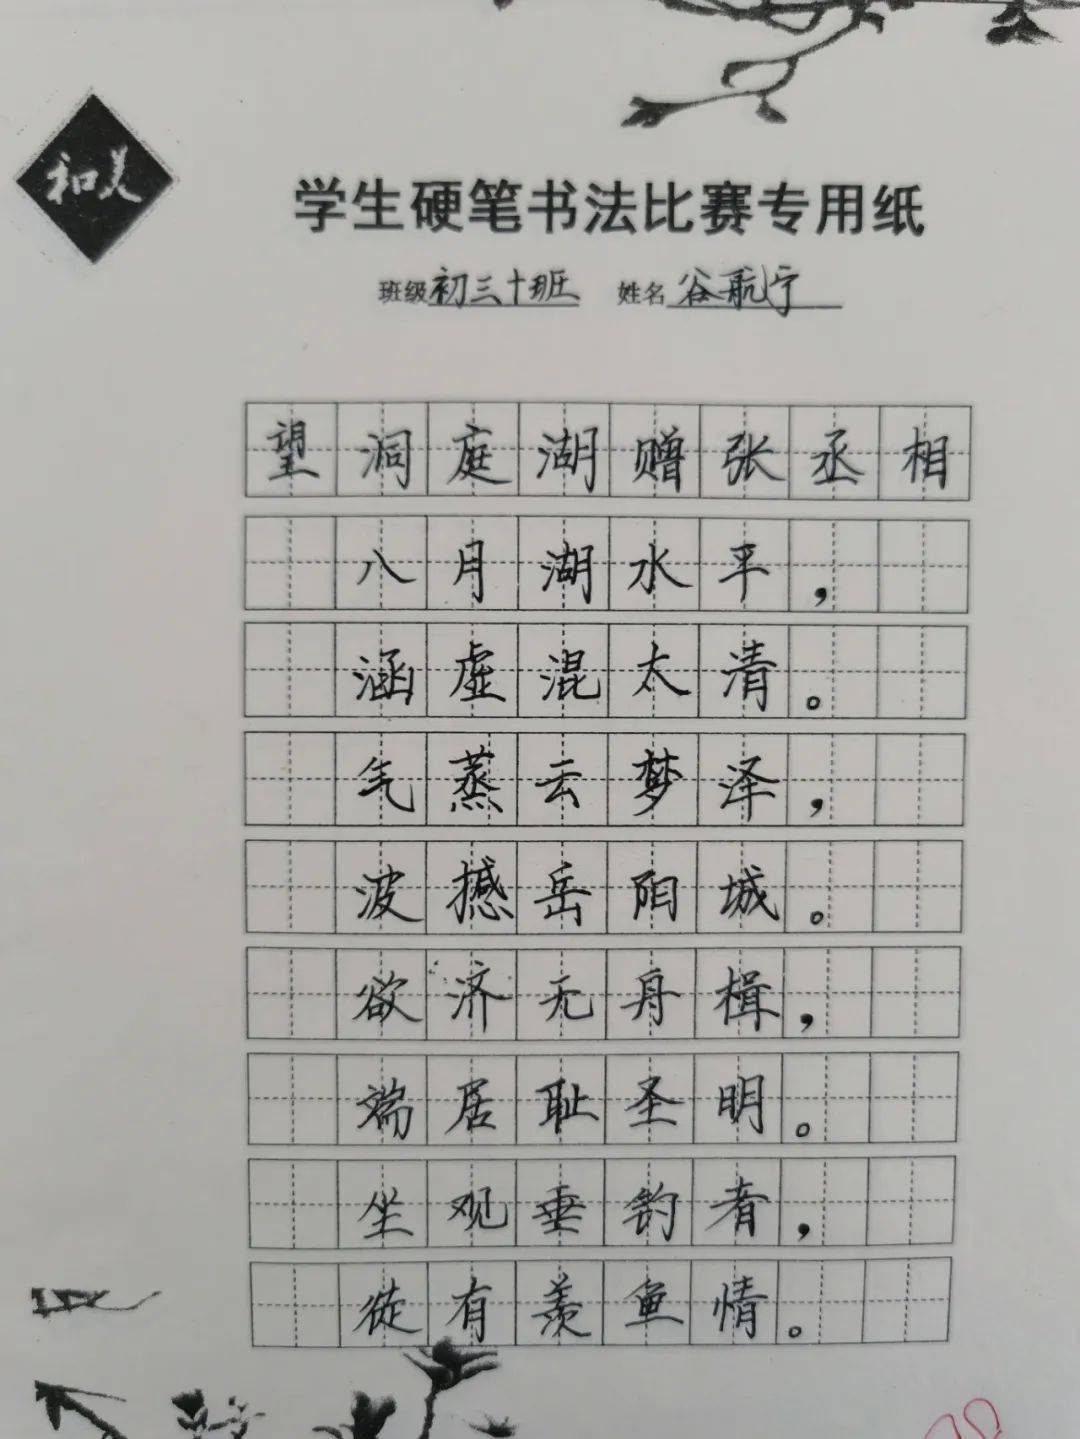 和美
学生硬笔书法比赛专用纸
班级初三十班 姓名谷航宁
望洞庭湖赠张丞相
八月湖水平，
涵虚混太清。
气蒸云梦泽，
波撼岳阳城。
欲济无舟楫，
端居耻圣明。
坐观垂钓者，
徒有羡鱼情。